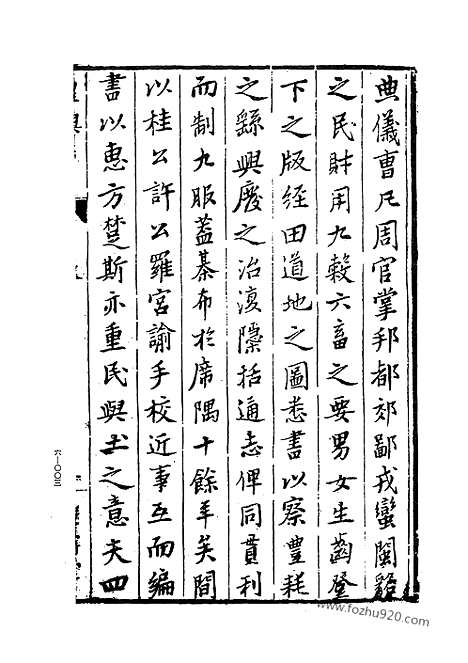 典儀曹凡周官掌邦都郊鄙戎蠻閩貉
之民財用九穀六畜之要男女生齒登
下之版經田道地之圖悉書以察豊耗
之繇興廢之治湏隱括通志俾同貫利
而制九服蓋棊布於席隅十餘年矣間
以桂公許公羅宮諭手校近事互而編
畫以惠方楚斯亦重民與土之意夫四
六—〇〇三
www.fozhu920.com